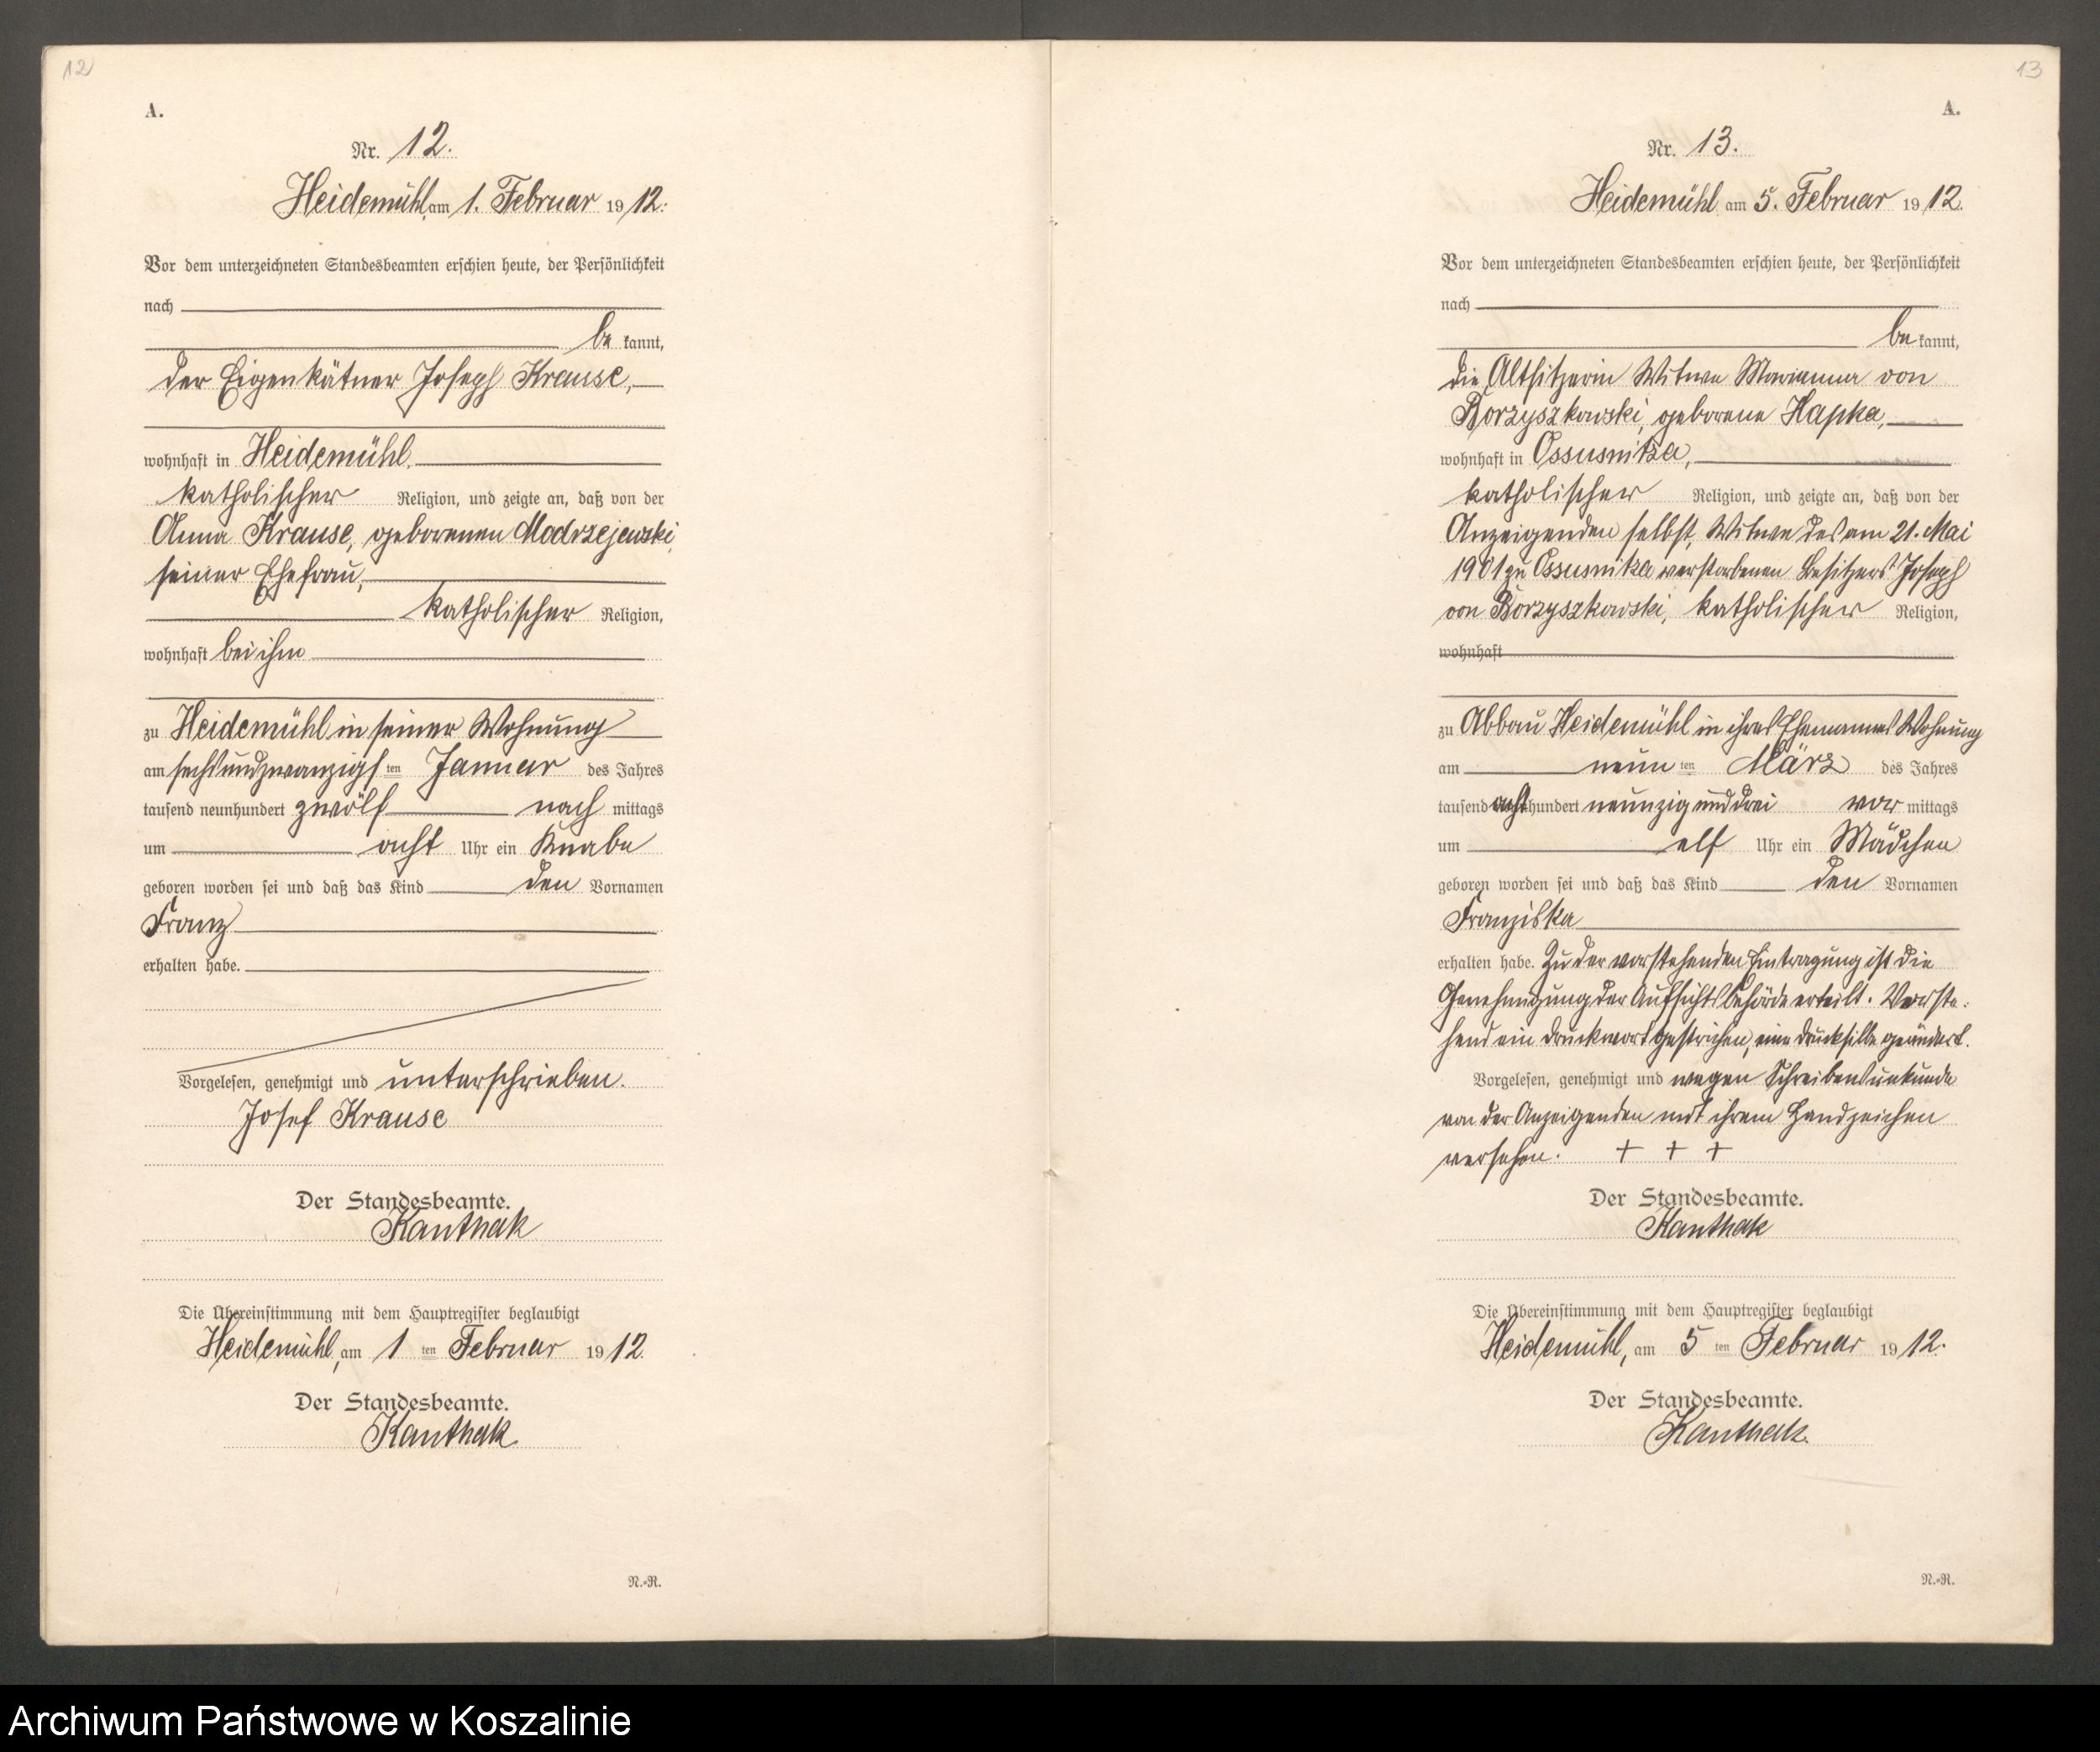 12
A.
Nr. 12.
Heidemühl, am 1. Februar 1912.
Vor dem unterzeichneten Standesbeamten erschien heute, der Persönlichkeit
nach
be kannt,
der Eigenkätner Joseph Krause,
wohnhaft in Heidemühl,
katholischer Religion, und zeigte an, daß von der
Anna Krause, geborenen Modrzejewski,
seiner Ehefrau,
katholischer Religion,
wohnhaft bei ihm
zu Heidemühl in seiner Wohnung
am sechsundzwanzigsten Januar des Jahres
tausend neunhundert zwölf nach mittags
um acht Uhr ein Knabe
geboren worden sei und daß das Kind den Vornamen
Franz
erhalten habe.
Vorgelesen, genehmigt und unterschrieben.
Josef Krause
Der Standesbeamte.
Kanthak
Die Übereinstimmung mit dem Hauptregister beglaubigt
Heidemühl, am 1 ten Februar 1912.
Der Standesbeamte.
Kanthak
N.-R.
13
A.
Nr. 13.
Heidemühl am 5. Februar 1912.
Vor dem unterzeichneten Standesbeamten erschien heute, der Persönlichkeit
nach
be kannt,
die Altsitzerin Witwe Marianna von
Borzyszkowski, geborene Hapka,
wohnhaft in Ossusnitza,
katholischer Religion, und zeigte an, daß von der
Anzeigenden selbst, Witwe des am 21. Mai
1901 zu Ossusnitza verstorbenen Besitzers Joseph
von Borzyszkowski, katholischer Religion,
wohnhaft
zu Abbau Heidemühl in ihres Ehemannes Wohnung
am neun ten März des Jahres
tausend acht hundert neunzig und drei vor mittags
um elf Uhr ein Mädchen
geboren worden sei und daß das Kind den Vornamen
Franziska
erhalten habe. Zu der vorstehenden Eintragung ist die
Genehmigung der Aufsichtsbehörde erteilt. Vorste-
hend ein Druckwort gestrichen, eine Drucksilbe geändert.
Vorgelesen, genehmigt und wegen Schreibensunkunde
von der Anzeigenden mit ihrem Handzeichen
versehen. + + +
Der Standesbeamte.
Kanthak
Die Übereinstimmung mit dem Hauptregister beglaubigt
Heidemühl, am 5 ten Februar 1912.
Der Standesbeamte.
Kanthak.
N.-R.
Archiwum Państwowe w Koszalinie